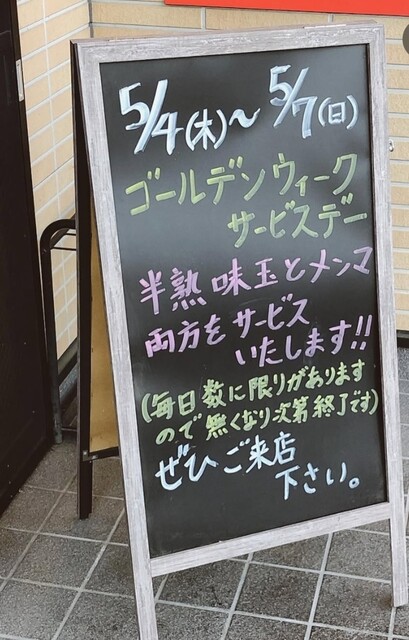 5/4(木)～5/7(日)
ゴールデンウィーク
サービスデー
半熟味玉とメンマ
両方をサービス
いたします!!
(毎日数に限りがあります
ので無くなり次第終了です)
ぜひご来店
下さい。